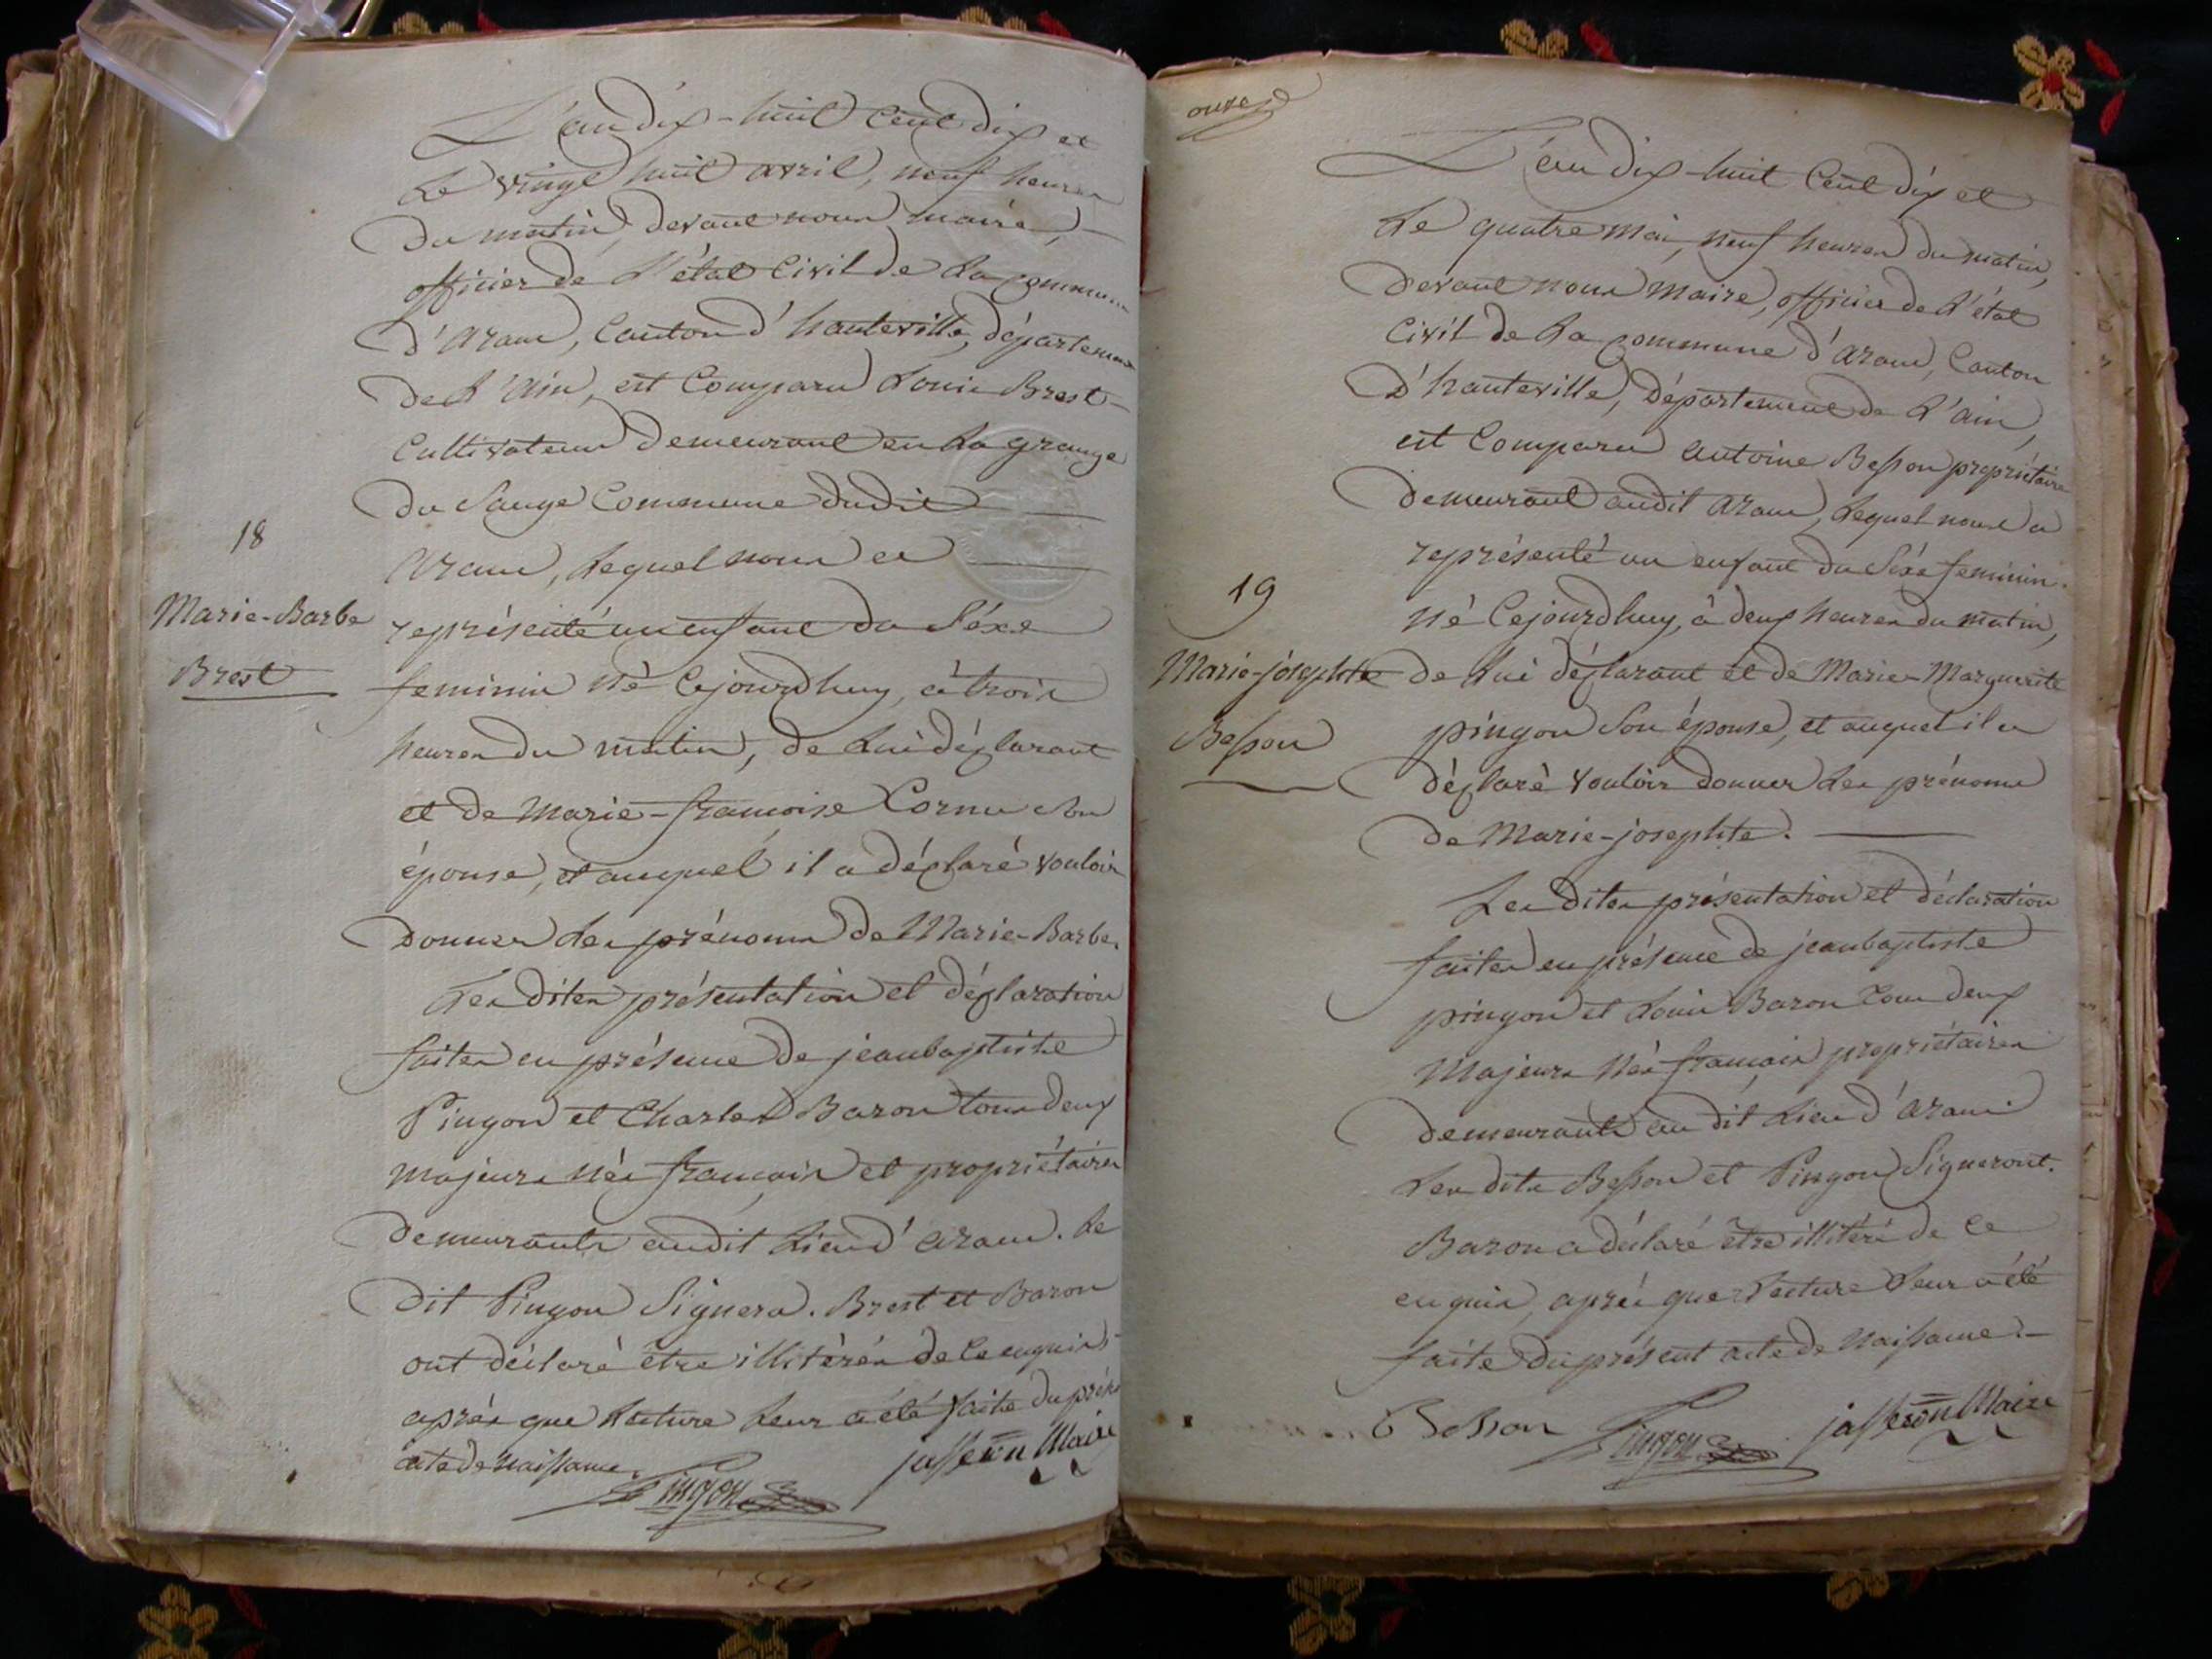 L'an dix-huit cent dix et
le vingt huit avril, neuf heures
du matin, devant nous maire,
officier de l'état civil de la commune
d'aranc, canton d'hauteville, département
de l'ain, est comparu Louis Brest
cultivateur demeurant en la grange
du Sauge commune dudit
aranc, lequel nous a
18
représenté un enfant du séxe
Marie-Barbe
Brest
feminin né cejourdhuy, à trois
heures du matin, de lui déclarant
et de marie-francoise Cornu son
épouse, et auquel il a déclaré vouloir
donner les prénoms de Marie-Barbe.
Les dites présentation et déclaration
faites en présence de jeanbaptiste
Pingon et Charles Baron tous deux
majeurs nés français et propriétaires
demeurants audit lieu d'aranc. le
dit Pingon signera. Brest et Baron
ont déclaré être illitérés de ce enquis
après que lecture leur a été faite du présent
acte de naissance.
Pingon
jasseron Maire
onze
L'an dix-huit cent dix et
le quatre mai, neuf heures du matin,
devant nous maire, officier de l'état
civil de la commune d'aranc, canton
d'hauteville, département de l'ain,
est comparu antoine Besson propriétaire
demeurant audit aranc, lequel nous a
représenté un enfant du séxe feminin
19
né cejourdhuy, à deux heures du matin,
Marie-josephte
Besson
de lui déclarant et de Marie-Marguerite
pingon son épouse, et auquel il a
déclaré vouloir donner les prénoms
de Marie-josephte.
Les dites présentation et déclaration
faites en présence de jeanbaptiste
pingon et Louis Baron tous deux
majeurs nés français propriétaires
demeurants au dit lieu d'aranc
Les dits Besson et Pingon signeront.
Baron a déclaré être illitéré de ce
enquis, après que lecture leur a été
faite du présent acte de naissance.
Besson
Pingon
jasseron Maire